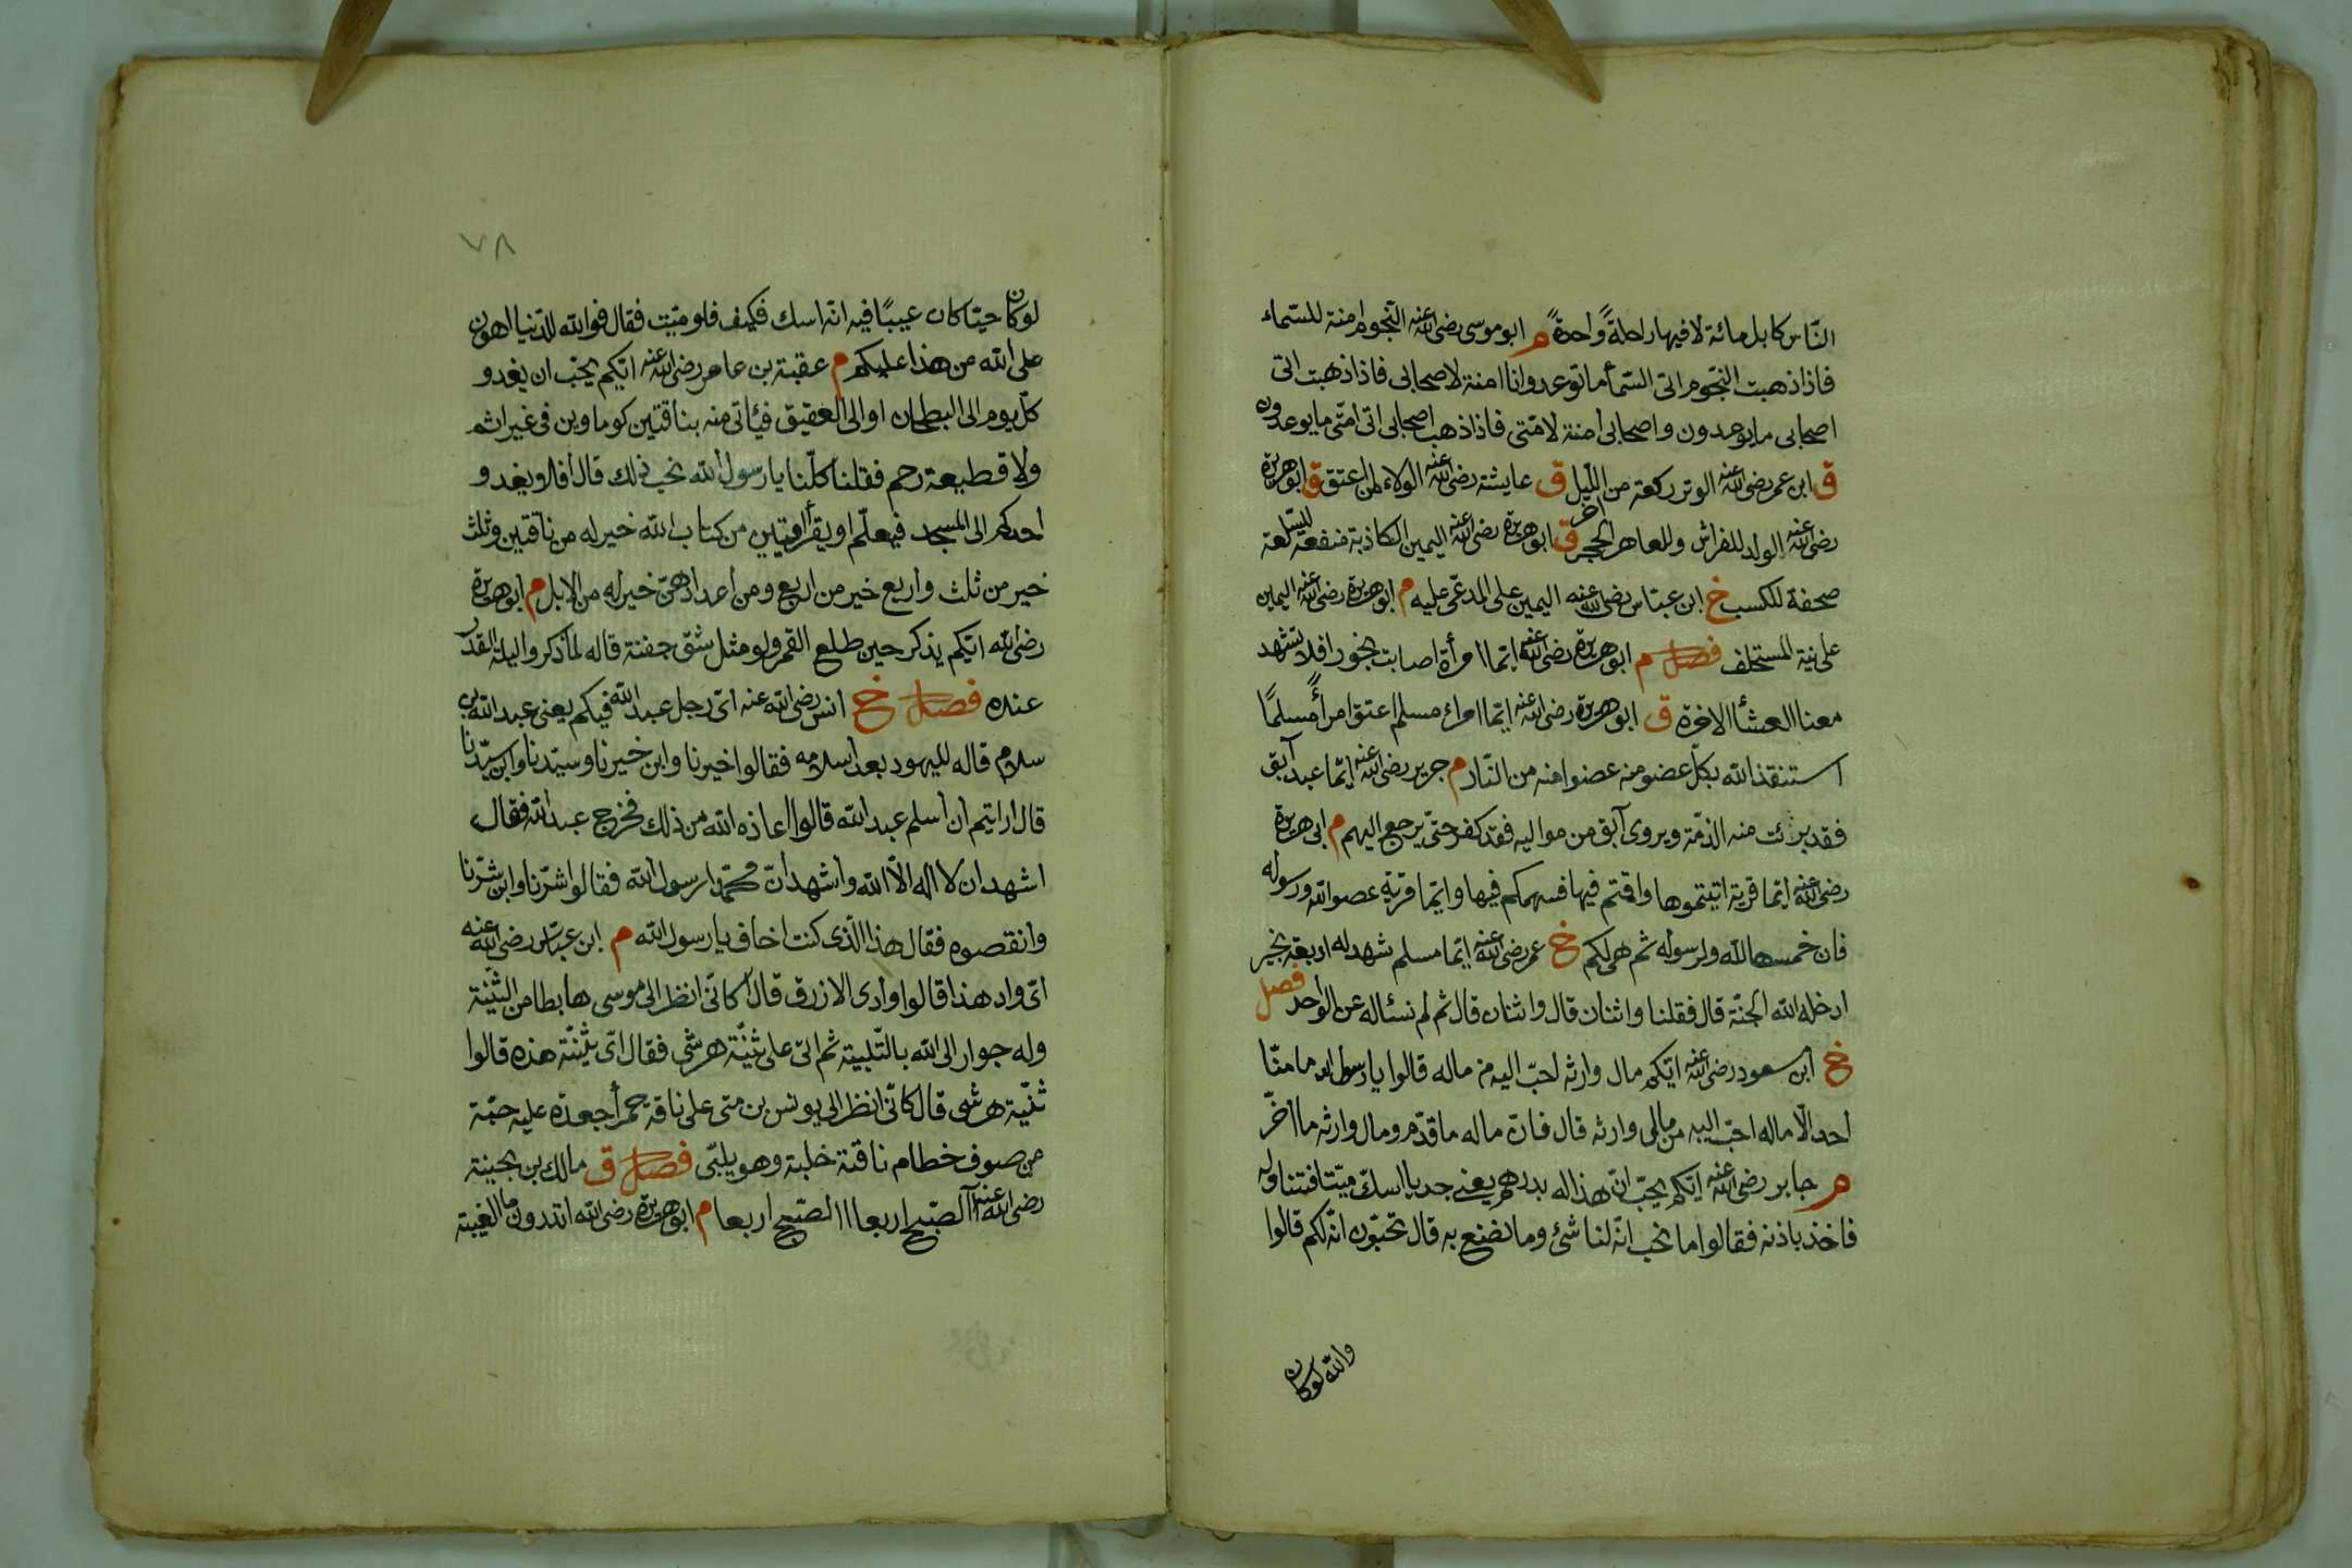 النّاس كابل مائة لا فيها راحلةً واحدةً م ابو موسى رضى الله عنه النّجوم امنة للسّماء
فاذا ذهبت النجوم اتى السّماء ما توعد وانا امنة لاصحابى فاذا ذهبت اتى
اصحابى ما يوعدون واصحابى امنة لامّتى فاذا ذهب اصحابى اتى امّتى ما يوعدون
ق ابن عمر رضى الله عنه الوتر ركعة من اخر اللّيل ق عايشة رضى الله عنه الولاء لمن اعتق ق ابو هريرة
رضى الله عنه الولد للفراش وللعاهر الحجر ق ابو هريرة رضى الله عنه اليمين الكاذبة منفعة للسّلعة
محقة للكسب خ ابن عبّاس رضى الله عنه اليمين على المدّعى عليه م ابو هريرة رضى الله عنه اليمين
على نية المستحلف فصل م ابو هريرة رضى الله عنه ايّما امرأة اصابت بخورا فلا تشهد
معنا العشأ الاخرة ق ابو هريرة رضى الله عنه ايّما امرئ مسلم اعتق امرأً مسلمًا
استنقذ الله بكلّ عضو منه عضوا منه من النّار م جرير رضى الله عنه ايّما عبد آبق
فقد برئت منه الذمّة ويروى آبق من مواليه فقد كفر حتّى يرجع اليهم م ابى هريرة
رضى الله عنه ايّما قرية اتيتموها واقمتم فيها فسهمكم فيها وايّما قرية عصوا الله ورسوله
فان خمسها لله ولرسوله ثم هى لكم خ عمر رضى الله عنه ايّما مسلم شهد له اربعة بخير
ادخله الله الجنّة قال فقلنا واثنان قال واثنان قال ثم لم نسئاله عن الواحد فصل
خ ابن مسعود رضى الله عنه ايّكم مال وارثه احبّ اليه من ماله قالوا يا رسول الله ما منّا
احد الّا ماله احبّ اليه من مالى وارثه قال فانّ ماله ما قدّم ومال وارثه ما اخّر
م جابر رضى الله عنه ايّكم يحبّ انّ هذا له بدرهم يعنى جديا اسكّ ميّتا فتناوله
فاخذ باذنه فقالوا ما نحب انّه لنا شئ وما نصنع به قال تحبّون انّه لكم قالوا
والله لوكان
٧٨
لو كان حيّا كان عيبًا فيه انّه اسك فكيف فلو ميّت فقال فوالله للدّنيا اهون
على الله من هذا عليكم م عقبة بن عامر رضى الله عنه ايّكم يحبّ ان يغدو
كلّ يوم الى البطحان او الى العقيق فيأتى منه بناقتين كوماوين فى غير اثم
ولا قطيعة رحم فقلنا كلّنا يا رسول الله نحب ذلك قال افلا ويغدو
احدكم الى المسجد فيعلّم او يقرأ ايتين من كتاب الله خير له من ناقتين وثلث
خير من ثلث واربع خير من اربع ومن اعدادهنّ خير له من الابل م ابو هريرة
رضى الله ايّكم يذكر حين طلع القمر ولو مثل شقّ جفنة قاله لما ذكروا ليلة القدر
عنده فصل خ انس رضى الله عنه اىّ رجل عبد الله فيكم يعنى عبد الله بن
سلام قاله لليهود بعد اسلامه فقالوا خيرنا وابن خيرنا وسيّدنا وابن سيّدنا
قال ارايتم ان اسلم عبد الله قالوا اعاذه الله من ذلك فخرج عبد الله فقال
اشهد ان لا اله الّا الله واشهد انّ محمّدا رسول الله فقالوا شرّنا وابن شرّنا
وانقصوه فقال هذا الّذى كنت اخاف يا رسول الله م ابن عبّاس رضى الله عنه
اىّ واد هذا قالوا وادى الازرق قال كانّى انظر الى موسى هابطا من الثّنيّة
وله جوار الى الله بالتّلبية ثم اتى على ثنيّة هرشى فقال اىّ ثنيّة هذه قالوا
ثنيّة هرشى قال كانّى انظر الى يونس بن متى على ناقة حمرأ جعدة عليه جبّة
من صوف خطام ناقتة خلبة وهو يلبّى فصل ق مالك بن بحينة
رضى الله عنه آالصّبح اربعا االصّبح اربعا م ابو هريرة رضى الله اتدرون ما الغيبة